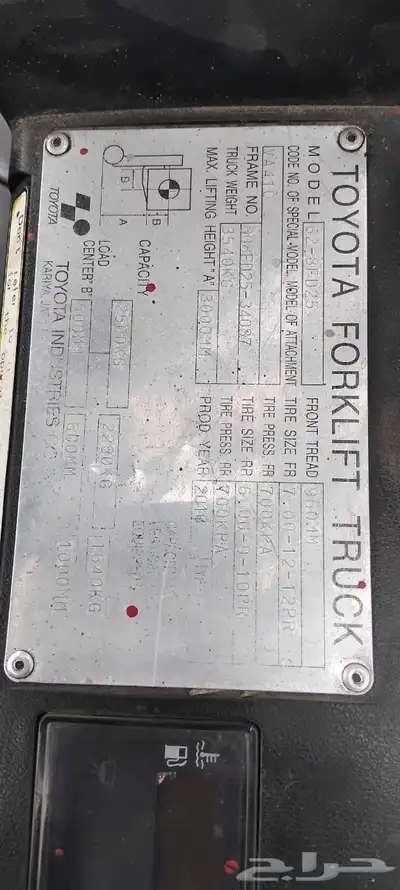 TOYOTA FORKLIFT TRUCK
MODEL 62-8FD25 FRONT TREAD 960MM
CODE NO. OF SPECIAL-MODEL, MODEL OF ATTACHMENT TIRE SIZE FR 7.00-12-12PR
VA41C TIRE PRESS. FR 700KPA
FRAME NO. 608FD25-34087 TIRE SIZE RR 6.00-9-10PR
TRUCK WEIGHT 3549KG TIRE PRESS. RR 700KPA
MAX. LIFTING HEIGHT "A" 3000MM PROD YEAR 2010
B
B
A
CAPACITY 2500KG 2290KG 1640KG
LOAD CENTER "B" 500MM 600MM 1000MM
TOYOTA
TOYOTA INDUSTRIES CO.
حراج